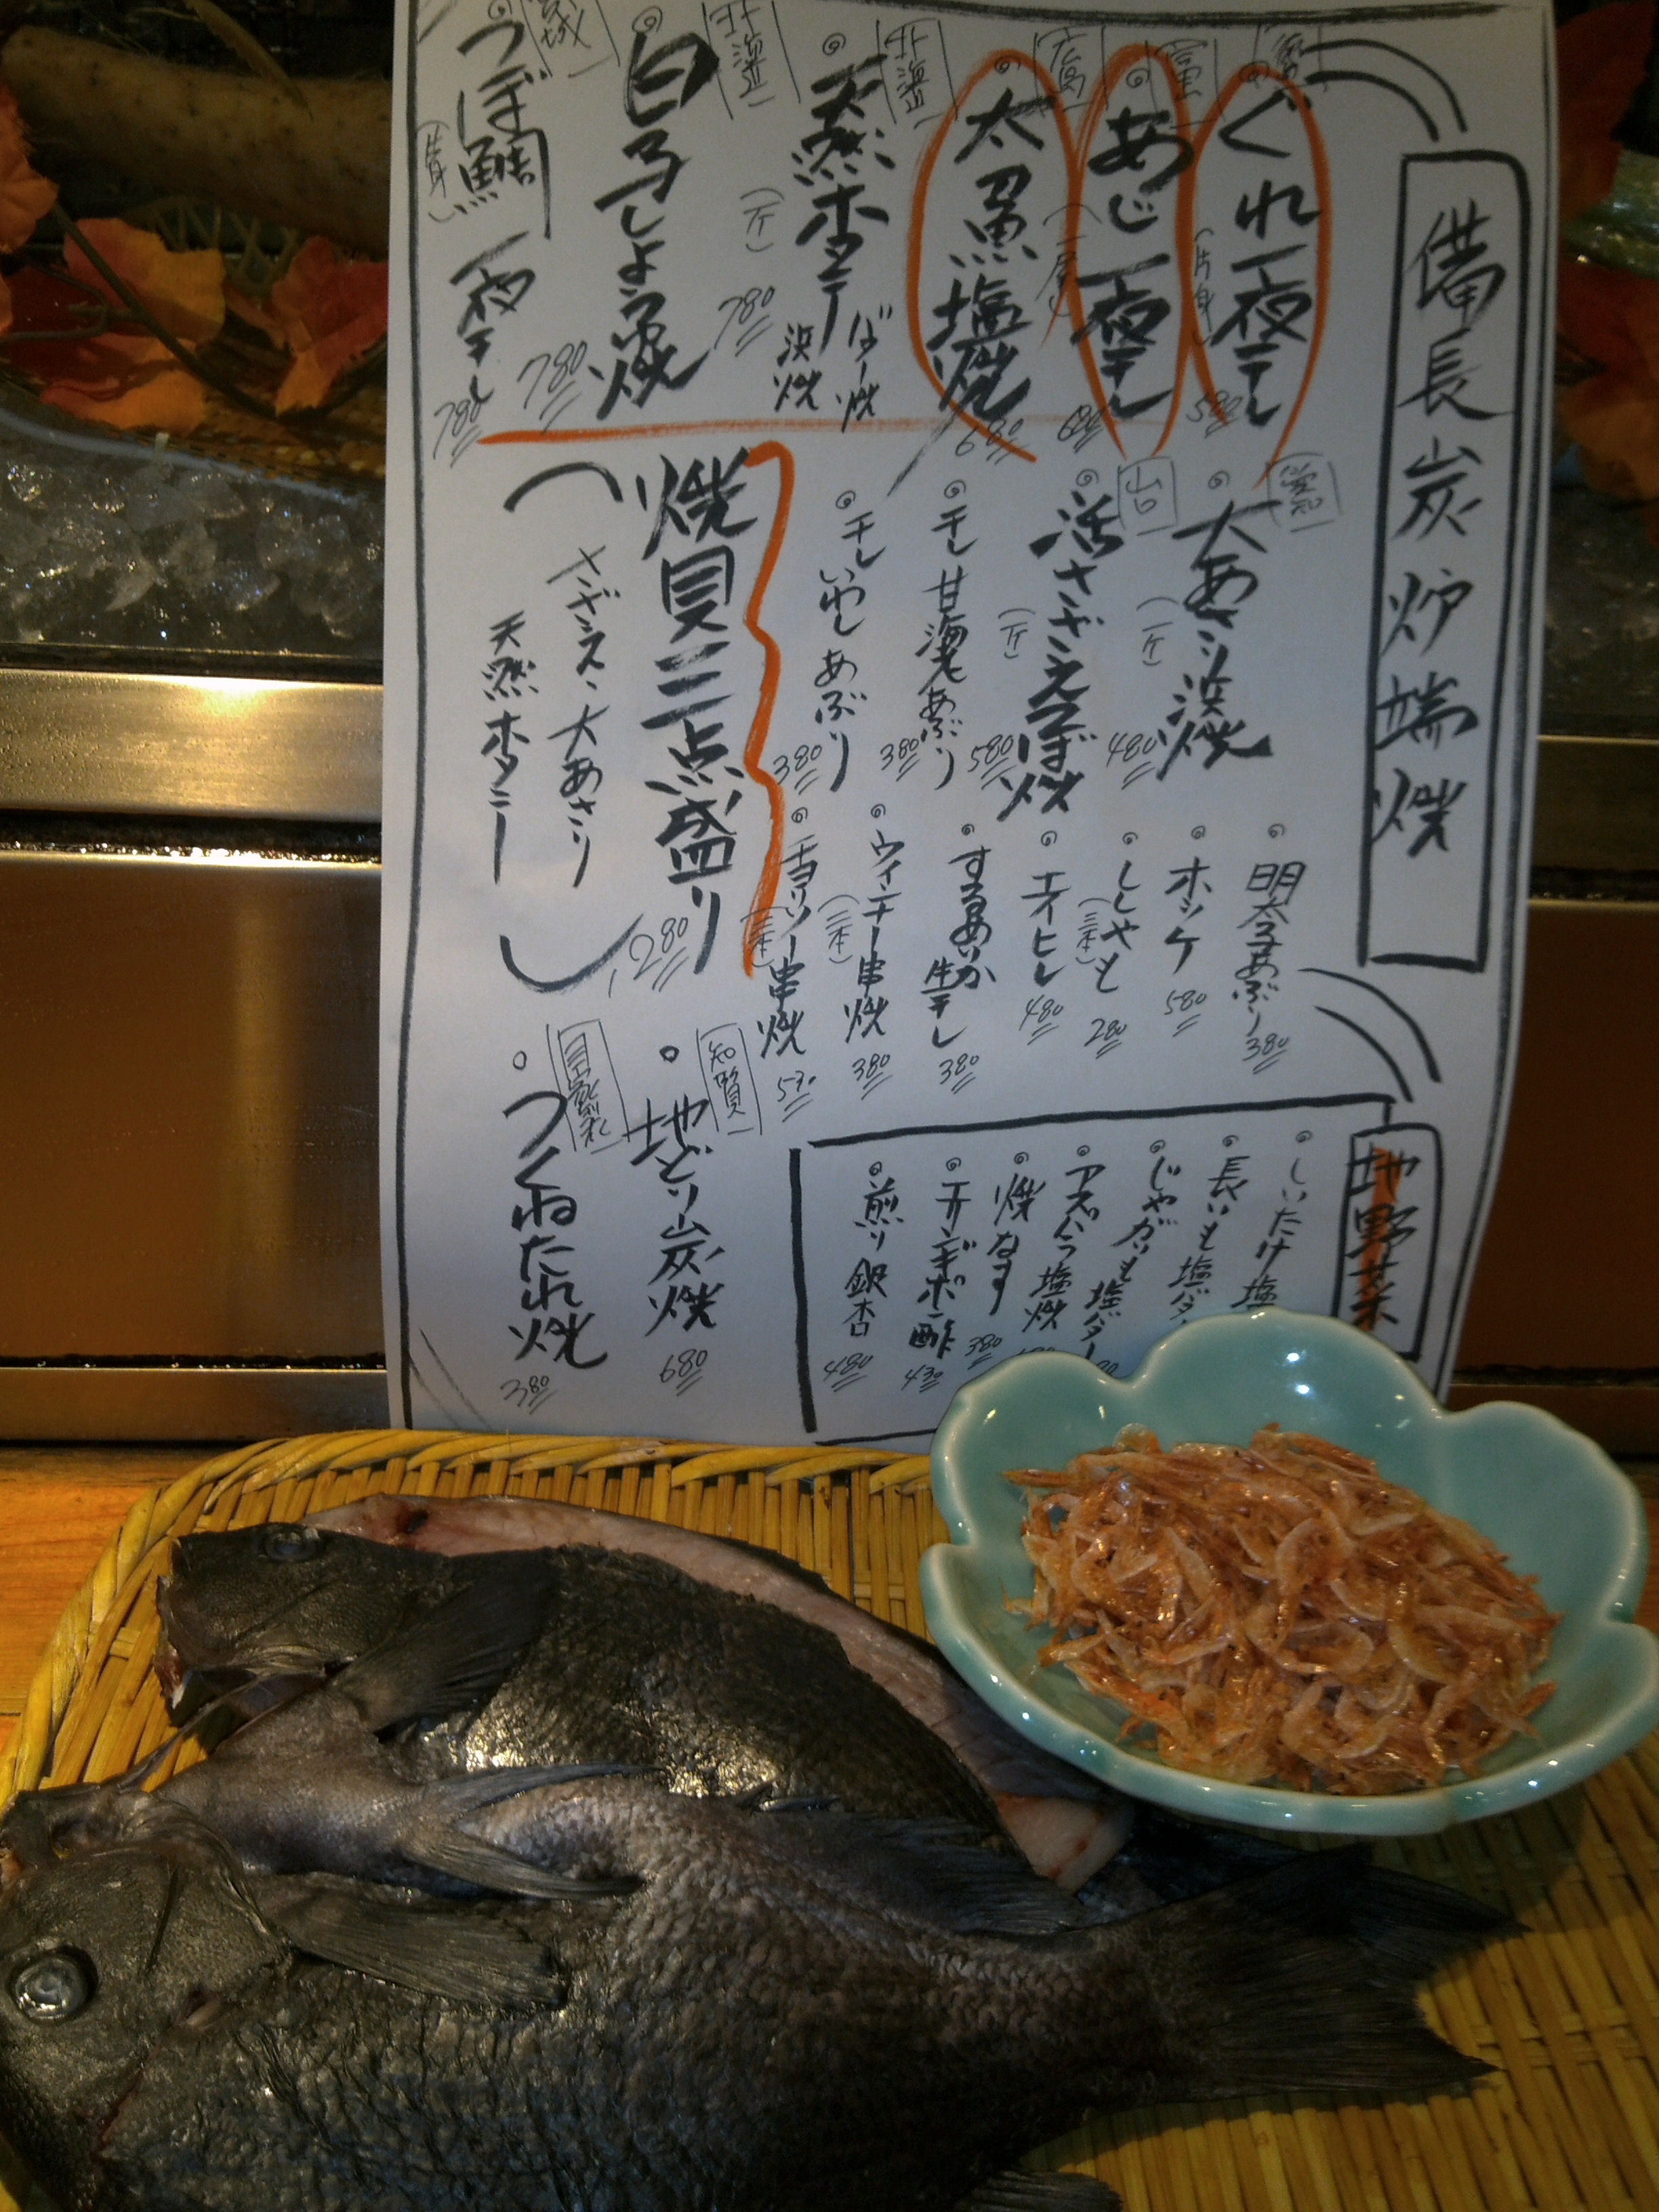 備長炭炉端焼
ぐれ一夜干し
(片身)
580
あじ一夜干し
(一尾)
680
太刀魚塩焼
680
北海道
天然ホタテ
ばター焼
浜焼
(一ケ)
780
北海道
白子しょう油焼
780
つぼ鯛一夜干し
(片身)
780
愛知
大あさり浜焼
(一ケ)
480
山口
活さざえつぼ焼
(一ケ)
580
干し甘海老あぶり
380
干しいわしあぶり
380
焼貝三点盛り
1,280
さざえ、大あさり
天然ホタテ
明太子あぶり
380
ホッケ
580
ししゃも
(三本)
280
エイヒレ
480
するめいか生干し
380
ウインナー串焼
(二本)
380
チョリソー串焼
(二本)
530
知覧
地どり炭焼
680
自家製
つくねたれ焼
380
地野菜
しいたけ塩
長いも塩バター
じゃがいも塩バター
アスパラ塩焼
焼なす
380
オンギポン酢
430
煎り銀杏
480